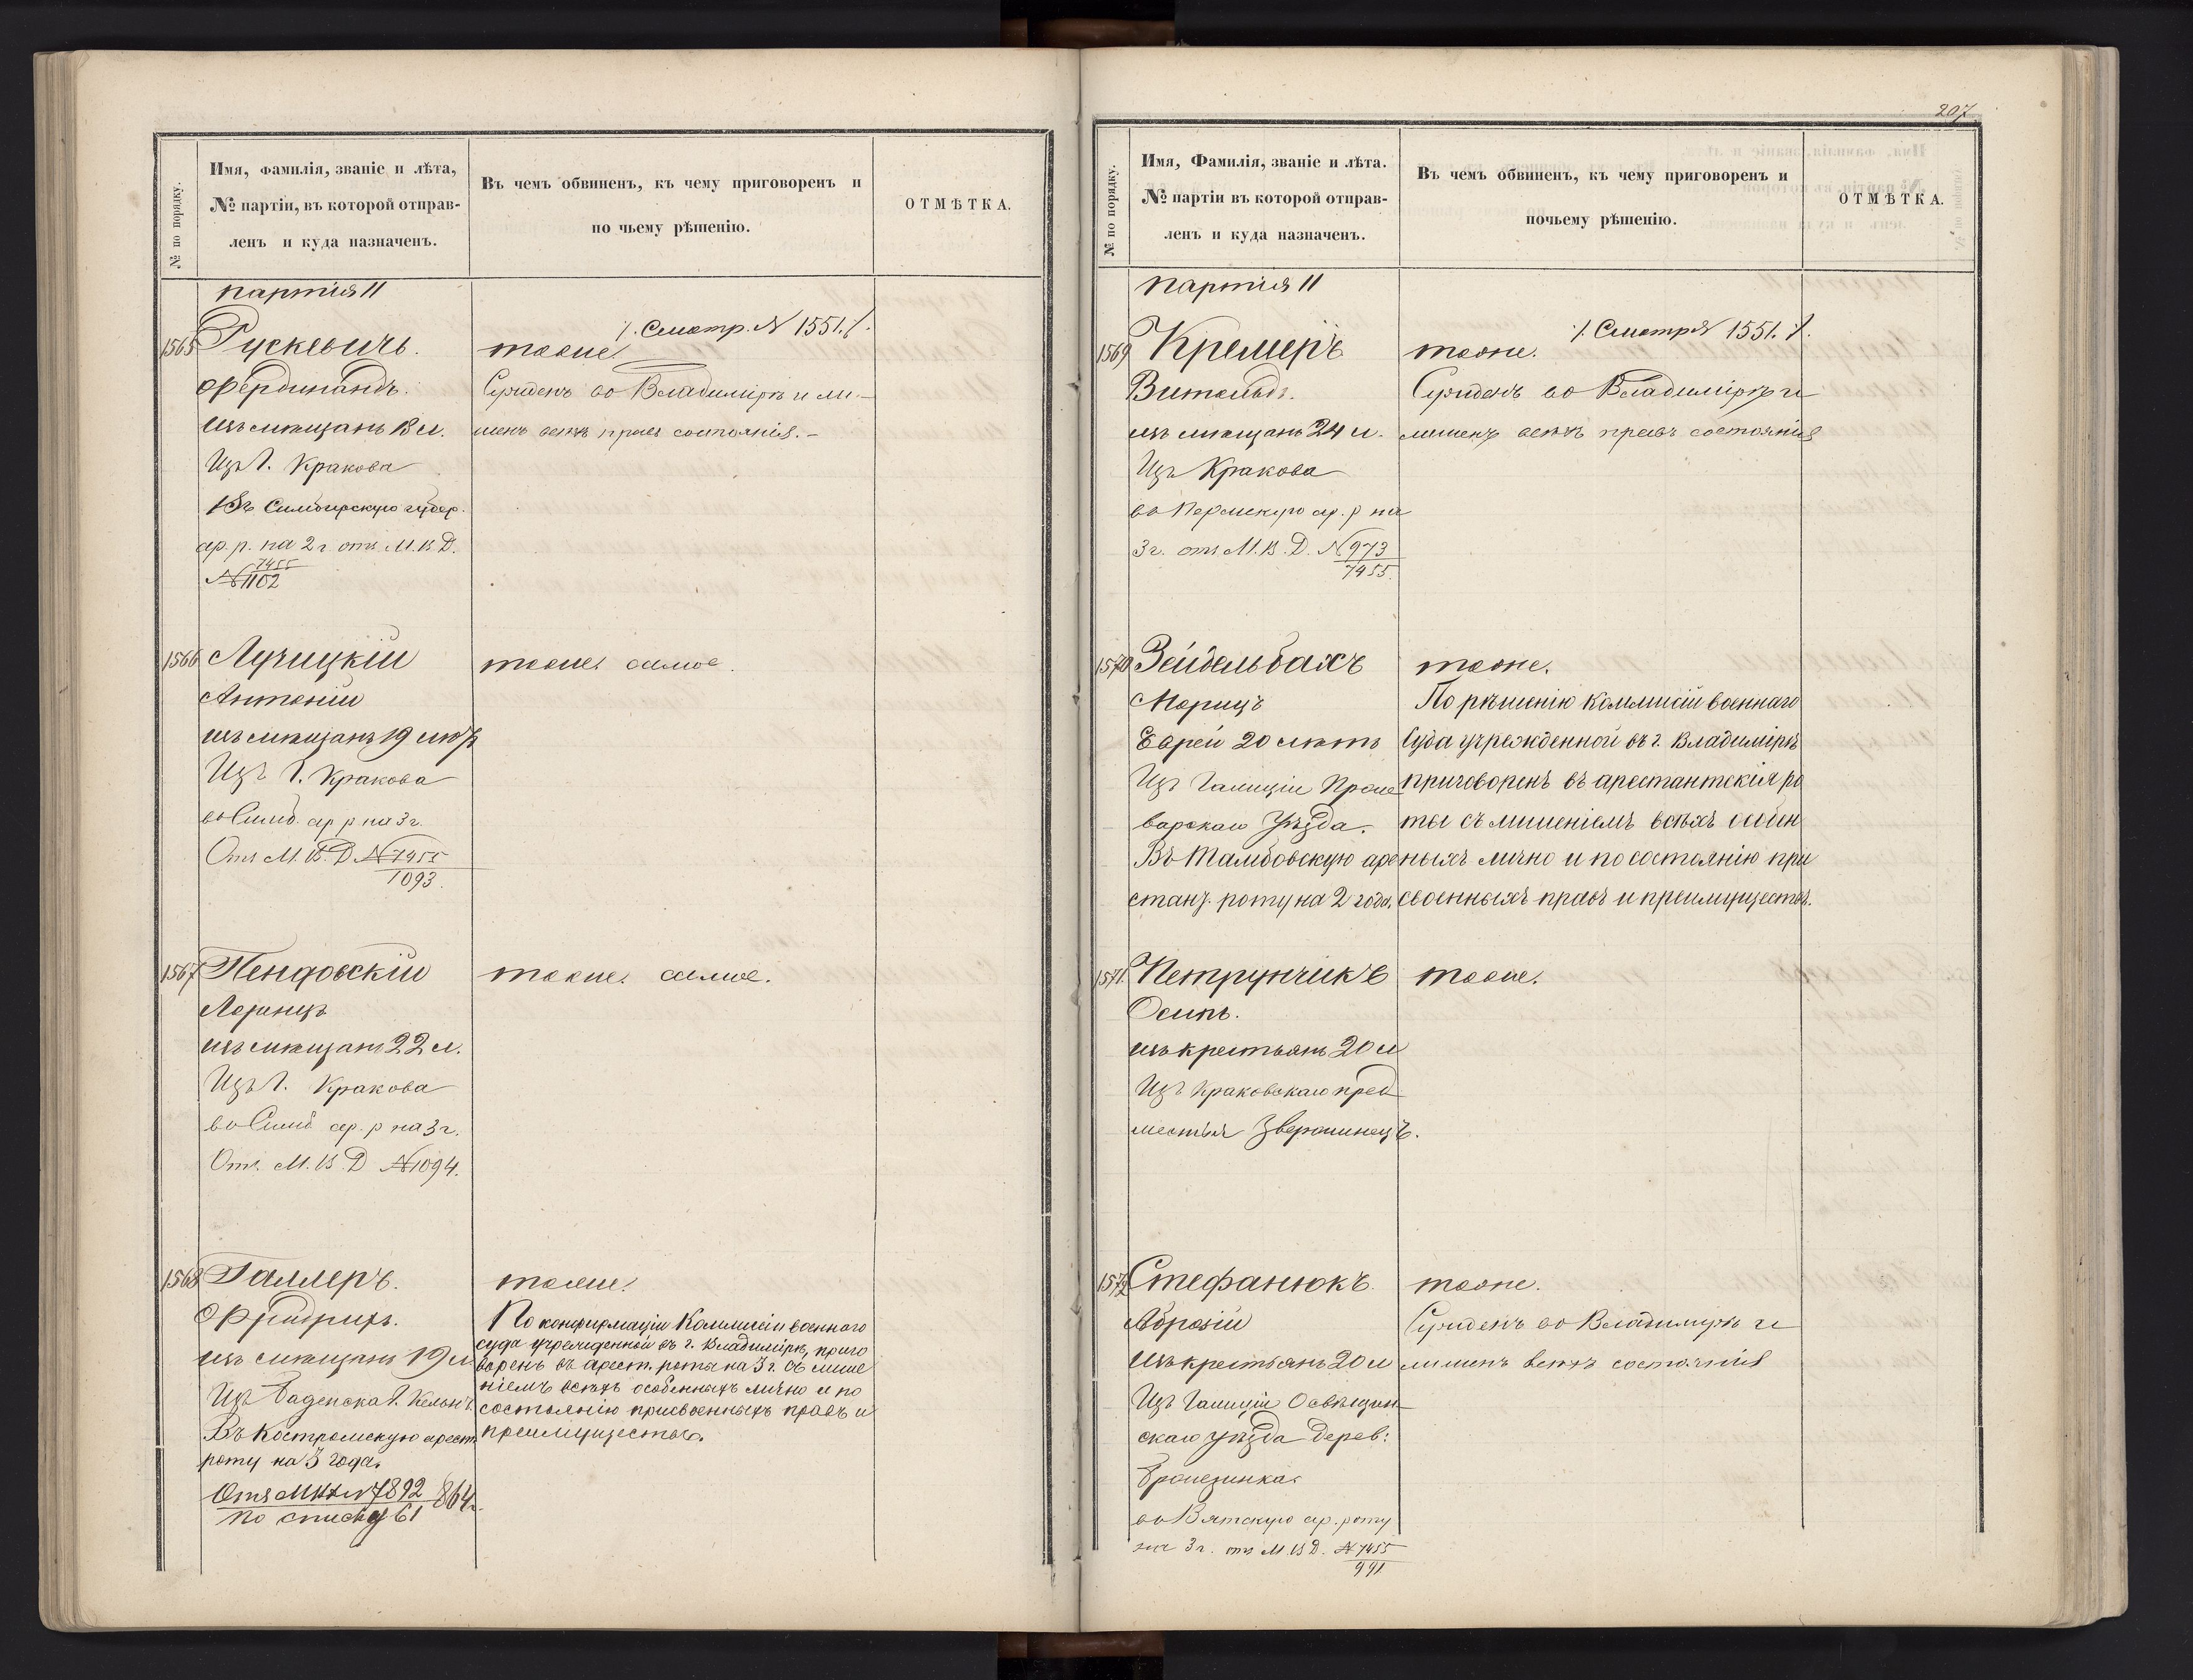 № по порядку.
Имя, Фамилія, званіе и лѣта,
№ партіи, въ которой отправ-
ленъ и куда назначенъ.
Въ чемъ обвиненъ, къ чему приговоренъ и
по чьему рѣшенію.
ОТМѢТКА.
партія 11
1565
Рускевичъ.
Фердинандъ.
изъ мѣщанъ 18 л.
Изъ г. Кракова
Въ Симбирскую губер.
ар. р. на 2 г. отъ М. В. Д.
7455
№ 1102
·/. Смотр. № 1551. /.
тоже
Сужденъ во Владимірѣ и ли-
шенъ всѣхъ правъ состоянія. -
1566
Лучицкій
Антоній
изъ мѣщанъ 19 лѣтъ
Изъ г. Кракова
во Симб. ар р на 3 г.
Отъ М. В. Д. № 7455
1093.
тоже самое.
1567
Пендовскій
изъ мѣщанъ 22 л.
Изъ г. Кракова
во Симб ар. р на 3 г.
Отъ. М. В. Д № 1094.
тоже самое.
1568
Галлеръ.
Фридрихъ.
изъ мѣщанъ 19 л
Изъ Баденска г. Кельнъ
Въ Костромскую арест.
роту на 3 года.
7892 864.
по списку 61
тоже.
По конфирмаціи Коммисіи военнаго
суда учрежденной въ г. Владимірѣ, приго
воренъ въ арест. роты на 3 г. съ лише
ніемъ всѣхъ особенныхъ лично и по
состоянію присвоенныхъ правъ и
преимуществъ.
207
№ по порядку.
Имя, Фамилія, званіе и лѣта.
№ партіи въ которой отправ-
ленъ и куда назначенъ.
Въ чемъ обвиненъ, къ чему приговоренъ и
почьему рѣшенію.
ОТМѢТКА.
партія 11
1569
Кремеръ
Витольдъ.
изъ мѣщанъ 24 л.
Изъ Кракова
во Пермскую ар. р на
3 г. отъ М. В. Д. № 973
7455.
·/. Смотр № 1551. /.
тоже.
Сужденъ во Владимірѣ и
лишенъ всѣхъ правъ состоянія
1570
Зейдельбахъ
Морицъ
Еврей 20 лѣтъ
Изъ Галиціи
варскаго Уѣзда.
Въ Тамбовскую аре
стант. роту на 2 года.
тоже.
По рѣшенію коммисіи военнаго
Суда учрежденной въ г. Владимірѣ
приговоренъ въ арестантскія ро
ты съ лишеніемъ всѣхъ особен
ныхъ лично и по состоянію при
своенныхъ правъ и преимуществъ.
1571.
Петрунчикъ
Осипъ.
изъ крестьянъ 20 л
Изъ Краковскаго пред
местья Звержинецъ.
тоже.
1572
Стефанюкъ.
изъ крестьянъ 20 л
Изъ Галиціи Освѣцин-
скаго уѣзда дерев:
во Вятскую ар. роту
на 3 г. отъ М. В. Д. № 7455
991
тоже.
Сужденъ во Владимірѣ и
лишенъ всѣхъ состоянія